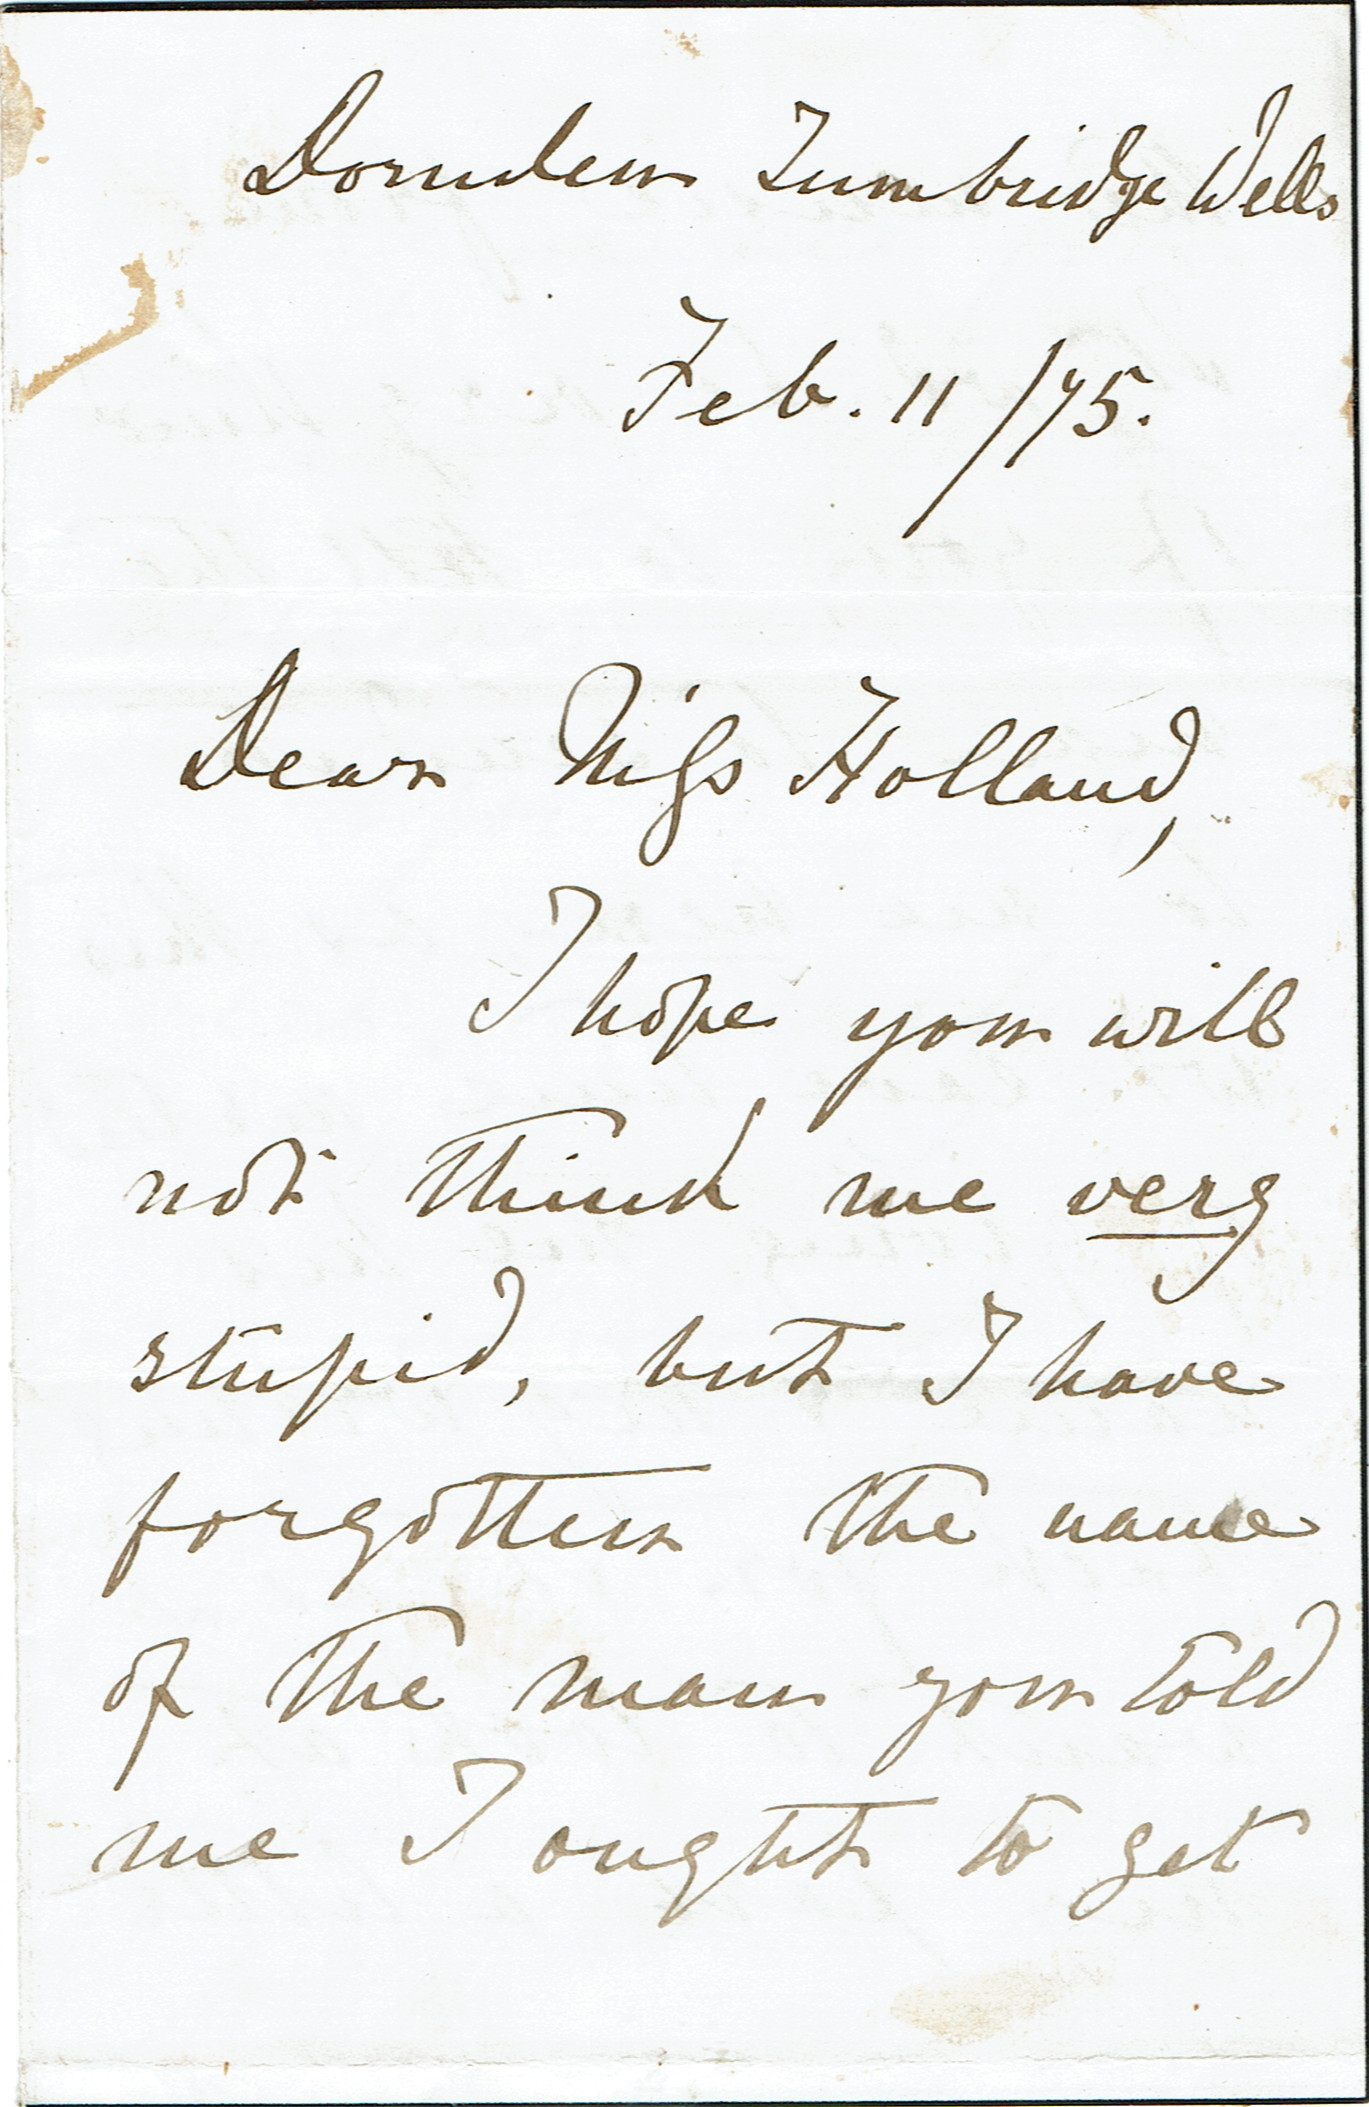 Dornden Tunbridge Wells
Feb. 11/75.
Dear Miss Holland,
I hope you will
not think me very
stupid, but I have
forgotten the name
of the man you told
me I ought to get